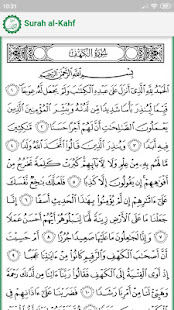 10:31
Surah al-Kahf
سُورَةُ الكَهْفِ
بِسْمِ ٱللَّهِ ٱلرَّحْمَـٰنِ ٱلرَّحِيمِ
ٱلْحَمْدُ لِلَّهِ ٱلَّذِىٓ أَنزَلَ عَلَىٰ عَبْدِهِ ٱلْكِتَـٰبَ وَلَمْ يَجْعَل لَّهُۥ عِوَجَاۜ ١
قَيِّمًا لِّيُنذِرَ بَأْسًا شَدِيدًا مِّن لَّدُنْهُ وَيُبَشِّرَ ٱلْمُؤْمِنِينَ ٱلَّذِينَ
يَعْمَلُونَ ٱلصَّـٰلِحَـٰتِ أَنَّ لَهُمْ أَجْرًا حَسَنًا ٢ مَّـٰكِثِينَ
فِيهِ أَبَدًا ٣ وَيُنذِرَ ٱلَّذِينَ قَالُوا۟ ٱتَّخَذَ ٱللَّهُ وَلَدًا ٤
مَّا لَهُم بِهِۦ مِنْ عِلْمٍ وَلَا لِـَٔابَآئِهِمْ كَبُرَتْ كَلِمَةً تَخْرُجُ مِنْ
أَفْوَٰهِهِمْ إِن يَقُولُونَ إِلَّا كَذِبًا ٥ فَلَعَلَّكَ بَـٰخِعٌ نَّفْسَكَ
عَلَىٰٓ ءَاثَـٰرِهِمْ إِن لَّمْ يُؤْمِنُوا۟ بِهَـٰذَا ٱلْحَدِيثِ أَسَفًا ٦ إِنَّا
جَعَلْنَا مَا عَلَى ٱلْأَرْضِ زِينَةً لَّهَا لِنَبْلُوَهُمْ أَيُّهُمْ أَحْسَنُ عَمَلًا
٧ وَإِنَّا لَجَـٰعِلُونَ مَا عَلَيْهَا صَعِيدًا جُرُزًا ٨ أَمْ حَسِبْتَ
أَنَّ أَصْحَـٰبَ ٱلْكَهْفِ وَٱلرَّقِيمِ كَانُوا۟ مِنْ ءَايَـٰتِنَا عَجَبًا ٩
إِذْ أَوَى ٱلْفِتْيَةُ إِلَى ٱلْكَهْفِ فَقَالُوا۟ رَبَّنَآ ءَاتِنَا مِن لَّدُنكَ رَحْمَةً
وَهَيِّئْ لَنَا مِنْ أَمْرِنَا رَشَدًا ١٠ فَضَرَبْنَا عَلَىٰٓ ءَاذَانِهِمْ فِى